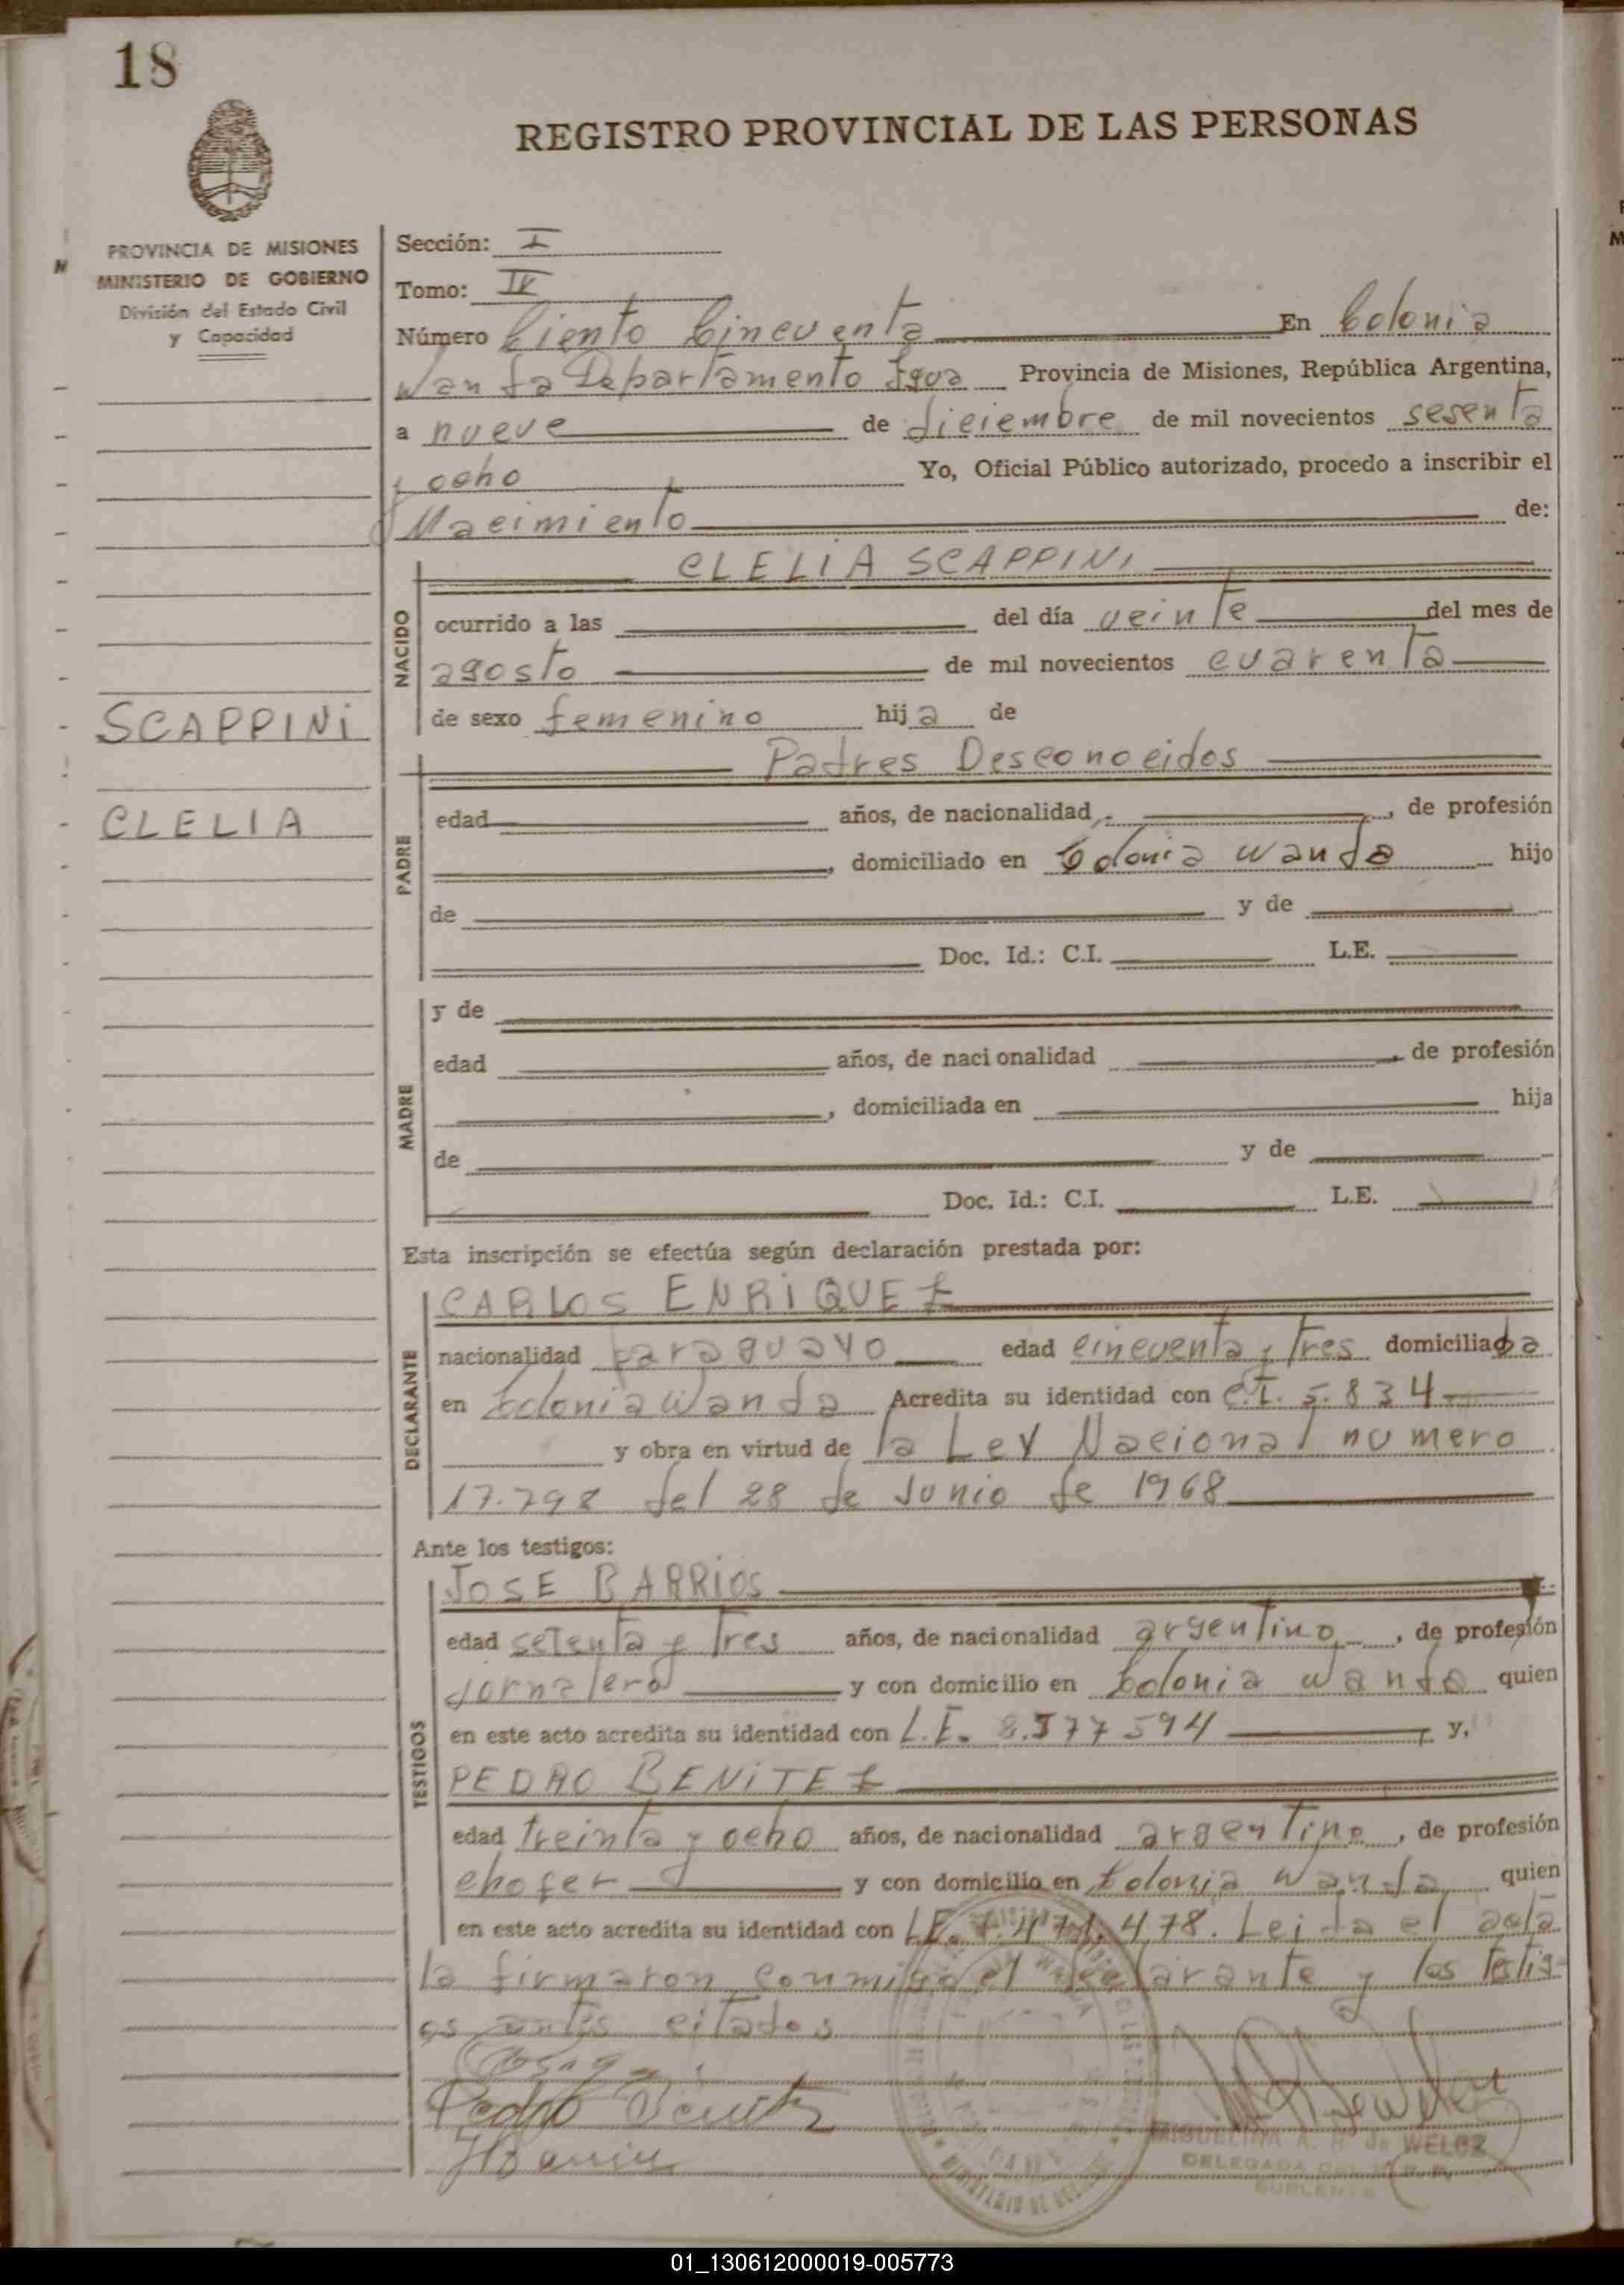 18
REGISTRO PROVINCIAL DE LAS PERSONAS
PROVINCIA DE MISIONES
MINISTERIO DE GOBIERNO
División del Estado Civil
y Capacidad
SCAPPINI
CLELIA
Sección: I
Tomo: IV
Número Ciento Cincuenta En Colonia
Wanda Departamento Igua Provincia de Misiones, República Argentina,
a nueve de diciembre de mil novecientos sesenta
y ocho Yo, Oficial Público autorizado, procedo a inscribir el
Nacimiento de:
CLELIA SCAPPINI
NACIDO
ocurrido a las del día veinte del mes de
agosto de mil novecientos cuarenta
de sexo femenino hija de
Padres Desconocidos
PADRE
edad años, de nacionalidad, de profesión
, domiciliado en Colonia Wanda hijo
de y de
Doc. Id.: C.I. L.E.
MADRE
y de
edad años, de nacionalidad de profesión
, domiciliada en hija
de y de
Doc. Id.: C.I. L.E.
Esta inscripción se efectúa según declaración prestada por:
DECLARANTE
CARLOS ENRIQUEZ
nacionalidad paraguayo edad cincuenta y tres domiciliada
en Colonia Wanda Acredita su identidad con C.I. 5.834
y obra en virtud de la Ley Nacional numero
17.798 del 28 de Junio de 1968
Ante los testigos:
TESTIGOS
JOSE BARRIOS
edad setenta y tres años, de nacionalidad argentino, de profesión
jornalero y con domicilio en Colonia Wanda quien
en este acto acredita su identidad con L.E. 8.577594 y,
PEDRO BENITEZ
edad treinta y ocho años, de nacionalidad argentino, de profesión
chofer y con domicilio en Colonia Wanda quien
en este acto acredita su identidad con L.E. 7.471.478. Leida el acta
la firmaron conmigo el declarante y los testig-
os antes citados
Pedro Benitez
JBarrios
MIGUELINA A. R. de WELCZ
DELEGADA DEL R.P.P.
SUPLENTE
01_130612000019-005773